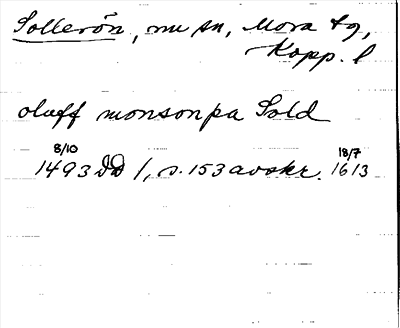 Sollerön, nu sn, Mora tg,
Kopp. l
oluff monson pa Sold
8/10 18/7
1493 DD 1, s. 153 avskr. 1613